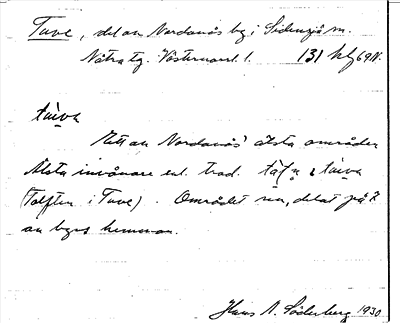 Tave, del av Nordanås by i Sidensjö sn.
Nätra tg. Västernorrl. l. 131 kly 69N.
tàıvα
Ett av Nordanås' älsta områden
Älsta invånare enl. trad. i tàıvα
(Tolften i Tave). Området nu, delat på 7
av byns hemman.
Hans A. Söderberg 1930